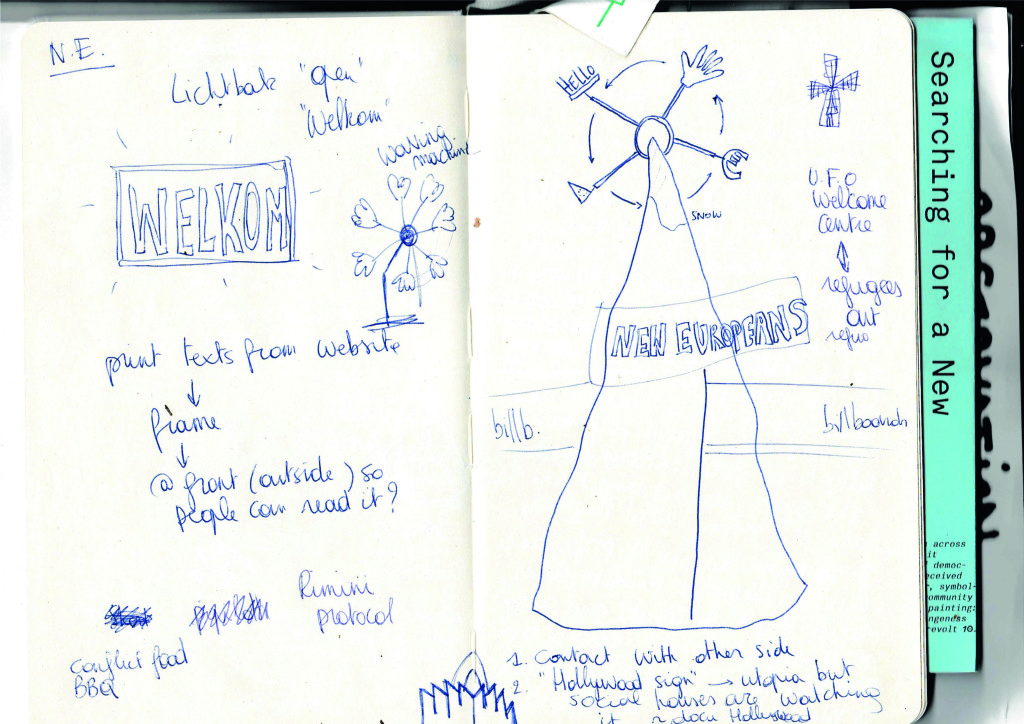 N.E.
Lichtbak "open"
"Welkom"
waving
machine
WELKOM
print texts from website
frame
@ front (outside) so
people can read it?
Rimini
protocol
conflict food
BBQ
HELLO
SNOW
U.F.O
welcome
centre
refugees
out
NEW EUROPEANS
billb.
billboards
1. Contact with other side
2. "Hollywood sign" → utopia but
social houses are watching
it
Hollywood
Searching for a New
across
it
democ-
eceived
, symbol-
ommunity
painting:
ngeness
revolt 10.